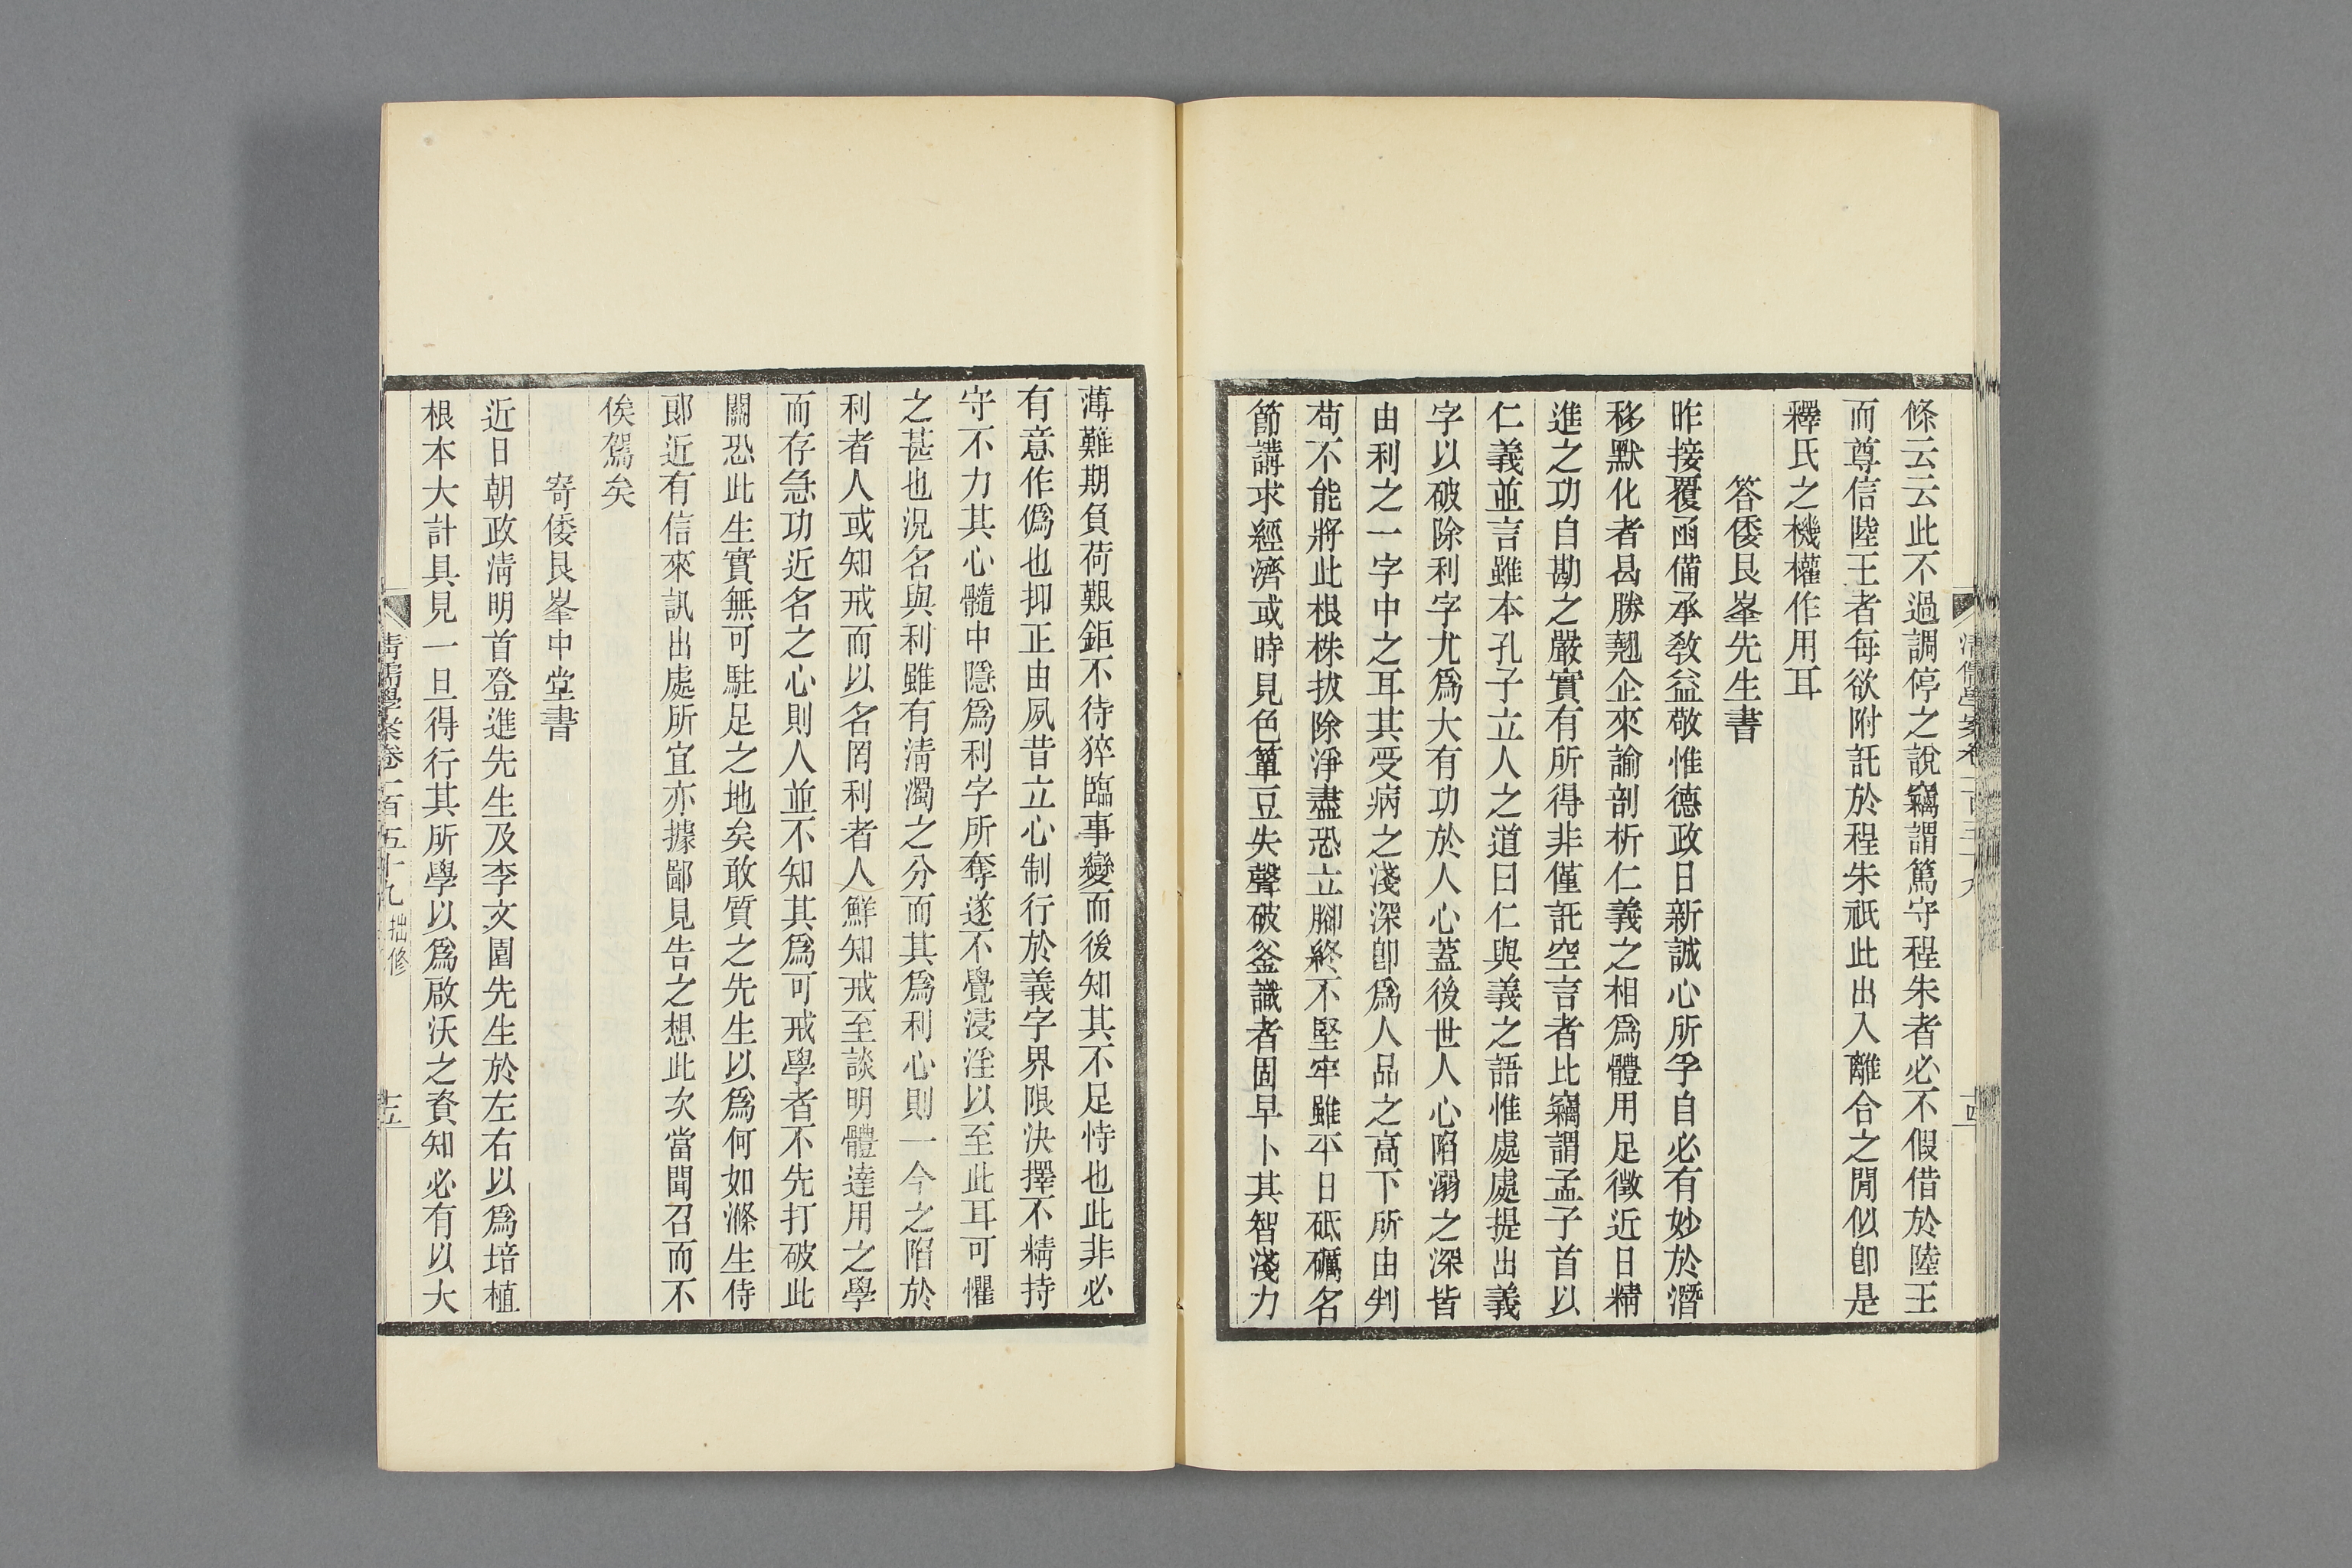 條云云此不過調停之說竊謂篤守程朱者必不假借於陸王
而尊信陸王者每欲附託於程朱祇此出入離合之閒似卽是
釋氏之機權作用耳
答倭艮峯先生書
昨接覆函備承敎益敬惟德政日新誠心所孚自必有妙於潛
移默化者曷勝翹企來諭剖析仁義之相爲體用足徵近日精
進之功自勘之嚴實有所得非僅託空言者比竊謂孟子首以
仁義並言雖本孔子立人之道曰仁與義之語惟處處提出義
字以破除利字尤爲大有功於人心蓋後世人心陷溺之深皆
由利之一字中之耳其受病之淺深卽爲人品之高下所由判
苟不能將此根株拔除淨盡恐立腳終不堅牢雖平日砥礪名
節講求經濟或時見色簞豆失聲破釜識者固早卜其智淺力
薄難期負荷艱鉅不待猝臨事變而後知其不足恃也此非必
有意作僞也抑正由夙昔立心制行於義字界限決擇不精持
守不力其心髓中隱爲利字所奪遂不覺浸淫以至此耳可懼
之甚也況名與利雖有淸濁之分而其爲利心則一今之陷於
利者人或知戒而以名罔利者人鮮知戒至談明體達用之學
而存急功近名之心則人並不知其爲可戒學者不先打破此
關恐此生實無可駐足之地矣敢質之先生以爲何如滌生侍
郎近有信來訊出處所宜亦據鄙見告之想此次當聞召而不
俟駕矣
寄倭艮峯中堂書
近日朝政淸明首登進先生及李文園先生於左右以爲培植
根本大計具見一旦得行其所學以爲啟沃之資知必有以大
淸儒學案卷一百五十九 拙修
十五
淸儒學案卷一百五十九
十四